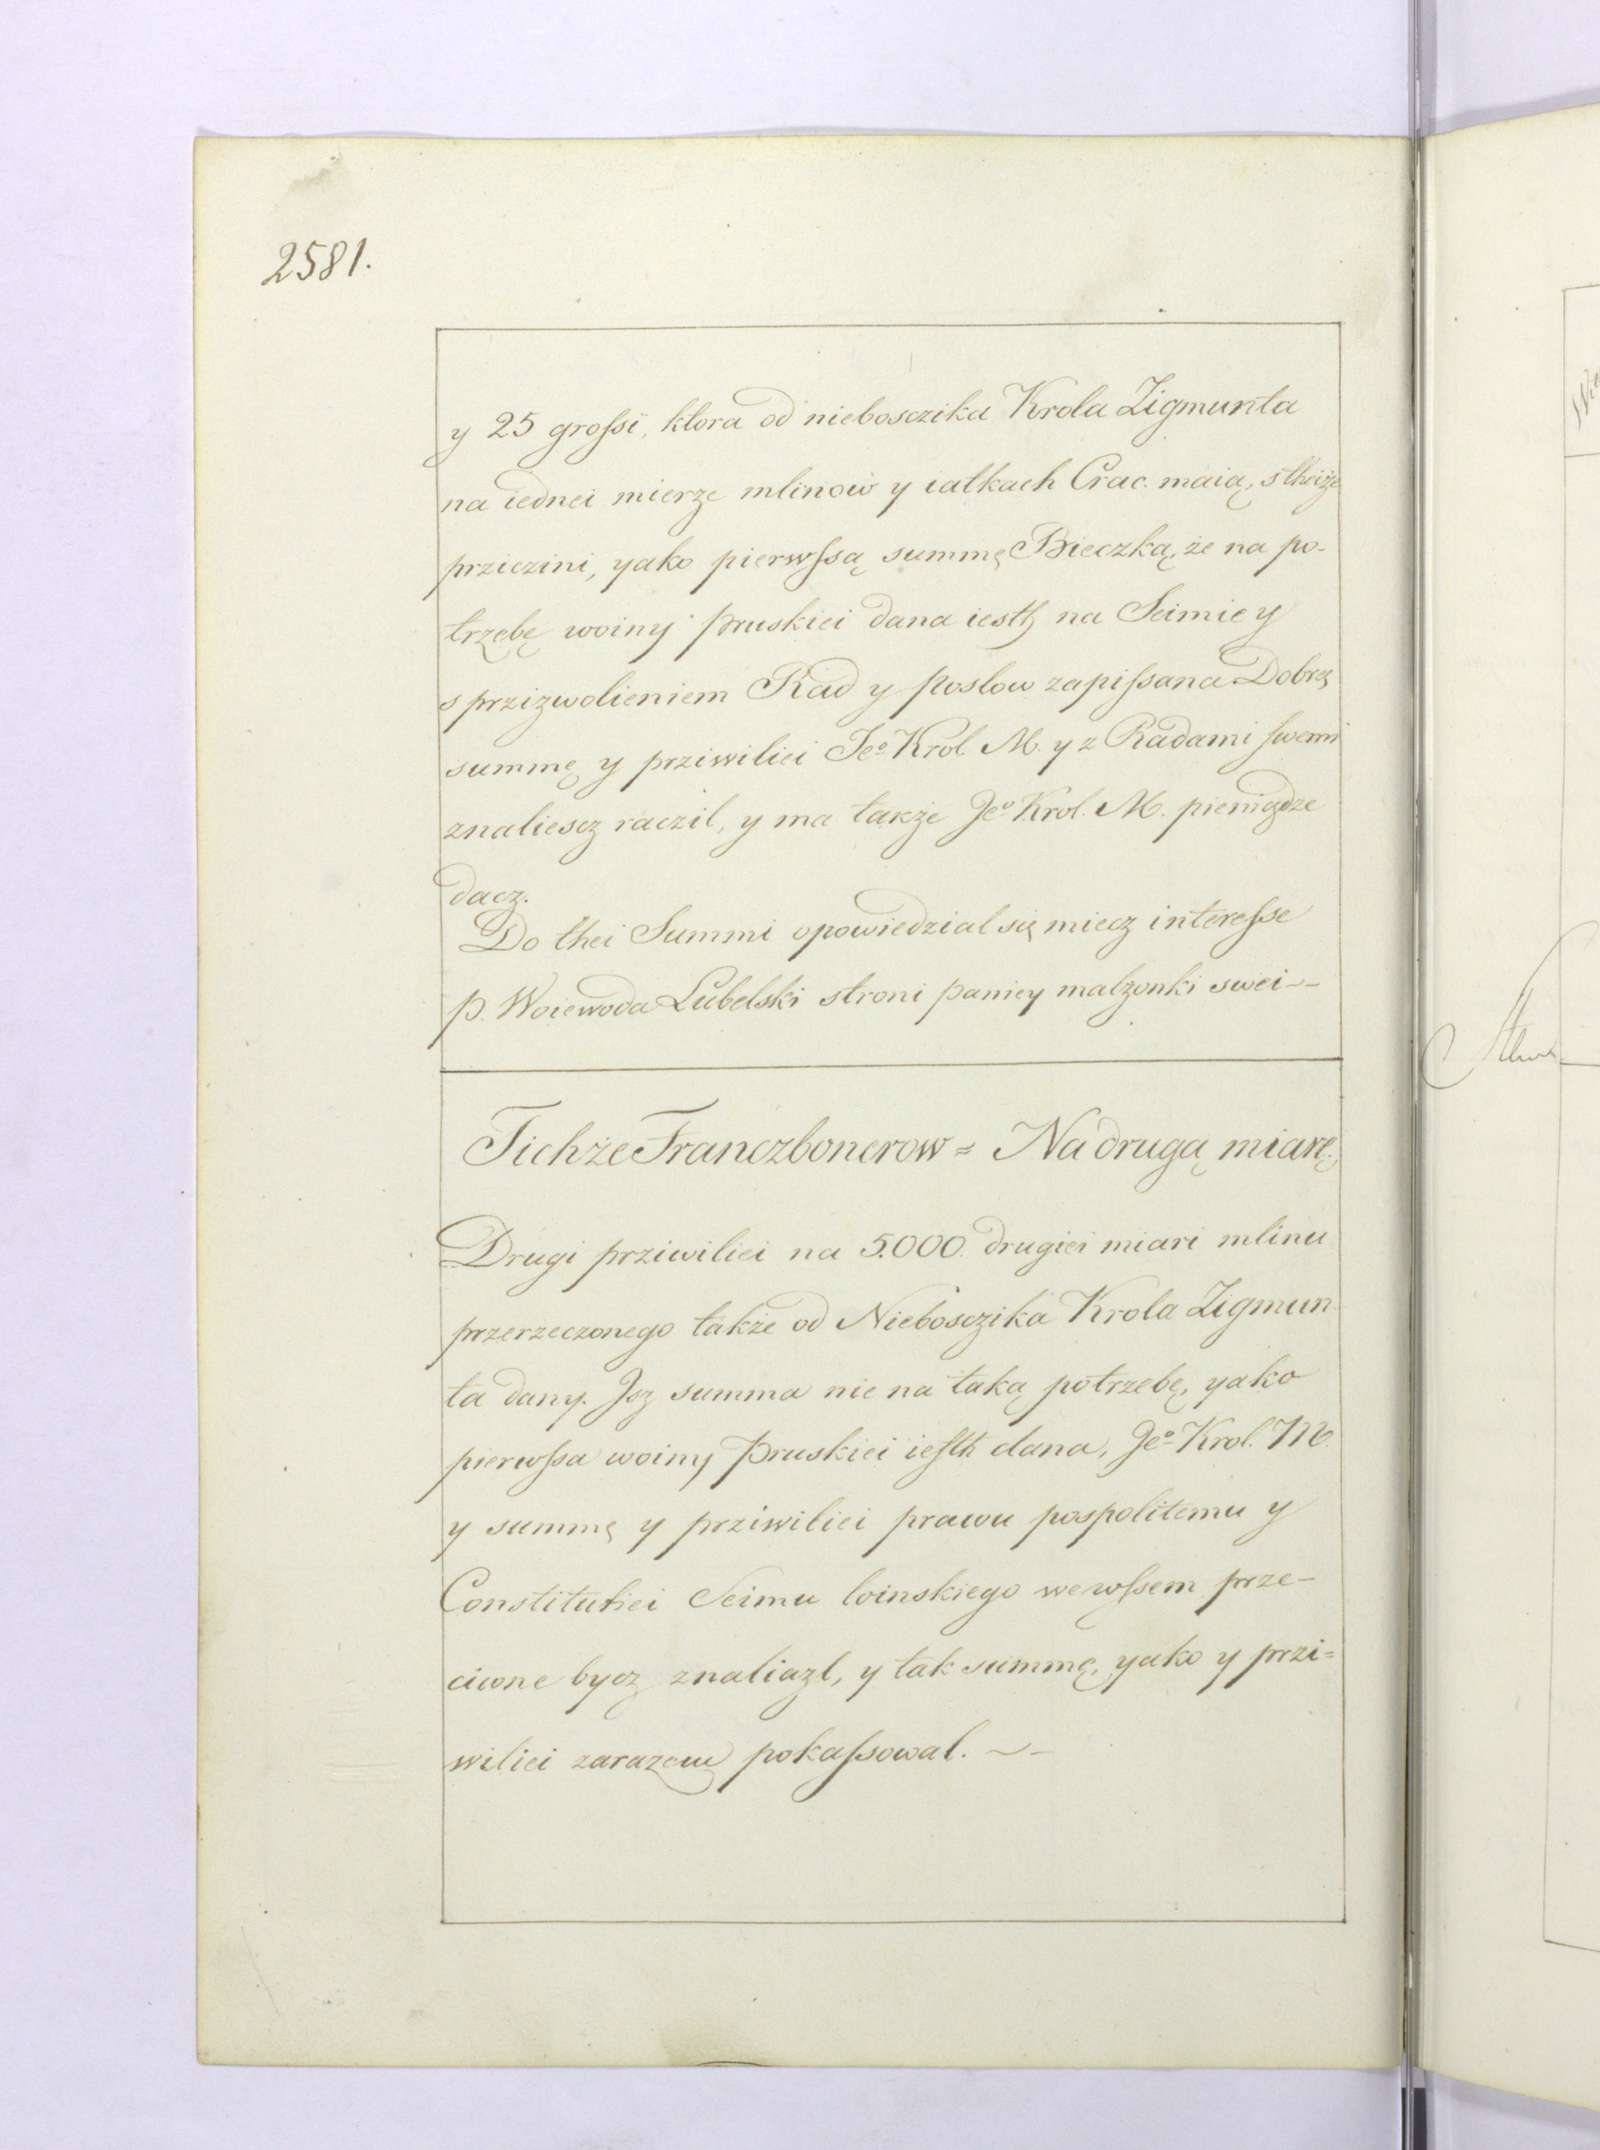 2581.
y 25 groſsi, ktora od nieboszika Krola Zigmunta
na iednei mierze mlinow y iatkach Crac. maią, stheiże
prziczini, yako pierwſsą summę Bieczką, że na po-
trzebę woiny pruskiei dana iesth na Seimie y
s przizwolieniem Rad y posłow zapiſsana Dobrą
summę y prziwiliei Jeº Krol. M. y z Radami ſwemi
znaliescz raczil, y ma także Jeº Krol. M. pieniądze
dacz.
Do thei Summi opowiedzial się miecz intereſse
p. Woiewoda Lubelski stroni paniey malzonki swei ~~
Tichże Franczbonerow = Na drugą miarę.
Drugi prziwiliei na 5.000. drugiei miari mlinu
przerzeczonego także od Nieboszika Krola Zigmun
ta dany. Jsz summa nie na taką potrzebę, yako
pierwſsa woiny pruskiei ieſth dana, Jeº Krol. M.
y summę y prziwiliei prawu pospolitemu y
Constitutiei Seimu loinskiego we wſsem prze-
ciwne bycz znaliazl, y tak summę, yako y przi=
wiliei zarazem pokaſsowal. ~-